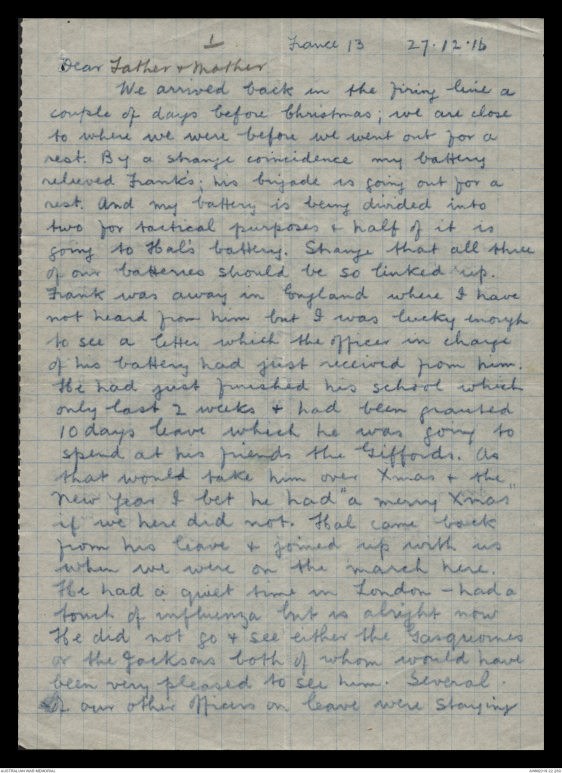 1
France 13 27.12.16
Dear Father & Mother
We arrived back in the firing line a
couple of days before Christmas; we are close
to where we were before we went out for a
rest. By a strange coincidence my battery
relieved Frank's; his brigade is going out for a
rest. And my battery is being divided into
two for tactical purposes & half of it is
going to Hal's battery. Strange that all three
of our batteries should be so linked up.
Frank was away in England where I have
not heard from him but I was lucky enough
to see a letter which the officer in charge
of his battery had just received from him.
He had just finished his school which
only last 2 weeks & had been granted
10 days leave which he was going to
spend at his friends the Giffords. As
that would take him over Xmas & the
New Year I bet he had "a merry Xmas"
if we here did not. Hal came back
from his leave & joined up with us
when we were on the march here.
He had a quiet time in London - had a
touch of influenza but is alright now
He did not go & see either the Gasquoines
or the Jacksons both of whom would have
been very pleased to see him. Several
of our other officers on leave were staying
AUSTRALIAN WAR MEMORIAL